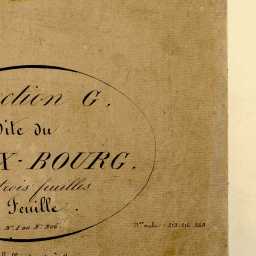 ction G.
Dite du
X-BOURG.
trois feuilles
Feuille.
N.º 1 au N.º 306.